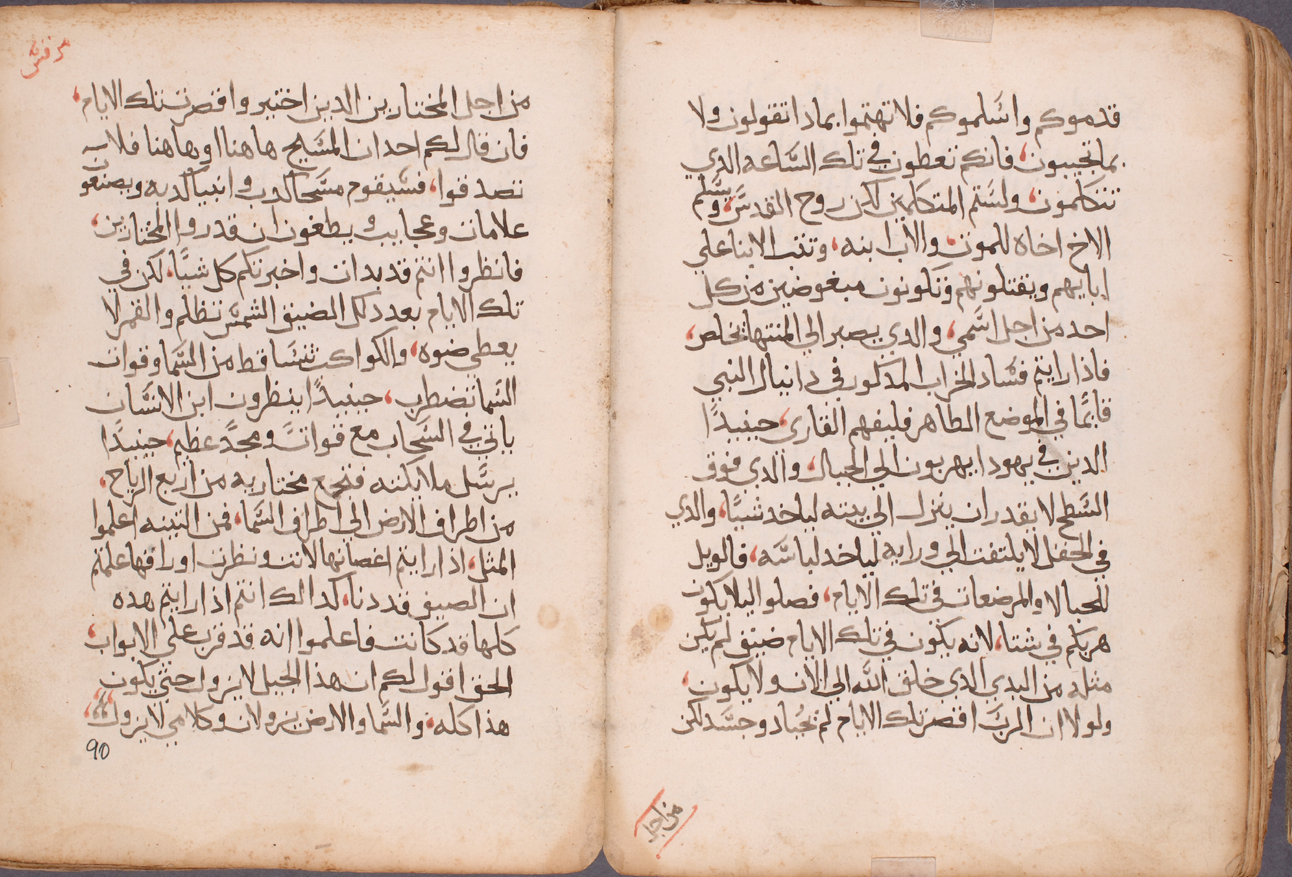 قدموكم واسلموكم فلا تهتموا بمادا تقولون ولا
بما تجيبون، فانكم تعطون في تلك الساعه الدي
تتكلمون، ولستم المتكلمين لكن روح القدس، وسيسلم
الاخ اخاه للموت، والاب ابنه، وتثب الابنا علي
ابايهم ويقتلونهم وتكونون مبغوضين من كل
احد من اجل اسمي، والدي يصبر الي المنتها يخلص،
فاذا رايتم فساد الخراب المدكور في دانيال النبي
قايما في الموضع الطاهر فليفهم القاري، حينيدا
الدين في يهودا يهربون الي الجبال، والدي فوق
السطح لا يقدر ان ينزل الي بيته لياخد شيا، والدي
في الحقل لا يلتفت الي ورايه لياخد لباسه، فالويل
للحبالا والمرضعات في تلك الايام، فصلوا ليلا يكون
هربكم في شتا، لانه يكون في تلك الايام ضيق لم يكن
مثله من البدي الدي خلق الله الي الان ولا يكون،
ولولا ان الرب اقصر تلك الايام لم يحيا دو جسد لكن
من اجل
مرقس
من اجل المختارين الدين اختير واقصرت تلك الايام،
فان قال لكم احد ان المسيح هاهنا او هاهنا فلا
تصدقوا، فسيقوم مسحا كدب وانبيا كدبه ويصنعو
علامات وعجايب ويطغون ان قدروا المختارين،
فانظروا انتم قد بدات واخبرتكم كل شيا، لكن في
تلك الايام بعد دلك الضيق الشمس تظلم والقمر لا
يعطي ضوه، والكواكب تتساقط من السما وقوات
السما تضطرب، حينيدا ينظرون ابن الانسان
ياتي في السحاب مع قوات ومجد عظيم، حينيدا
يرسل ملايكته فتجمع مختاريه من اربع الرياح،
من اطراف الارض الي اطراف السما، فمن التينه اعلموا
المثل، اذا رايتم اغصانها لانت ونظرت اوراقها علمتم
ان الصيف قد دنا، كدالك انتم اذا رايتم هده
كلها قد كانت فاعلموا انه قد قرب علي الابواب،
الحق اقول لكم ان هذا الجيل لا يزول حتي يكون
هذا كله، والسما والارض يزولان وكلامي لا يزول،
90